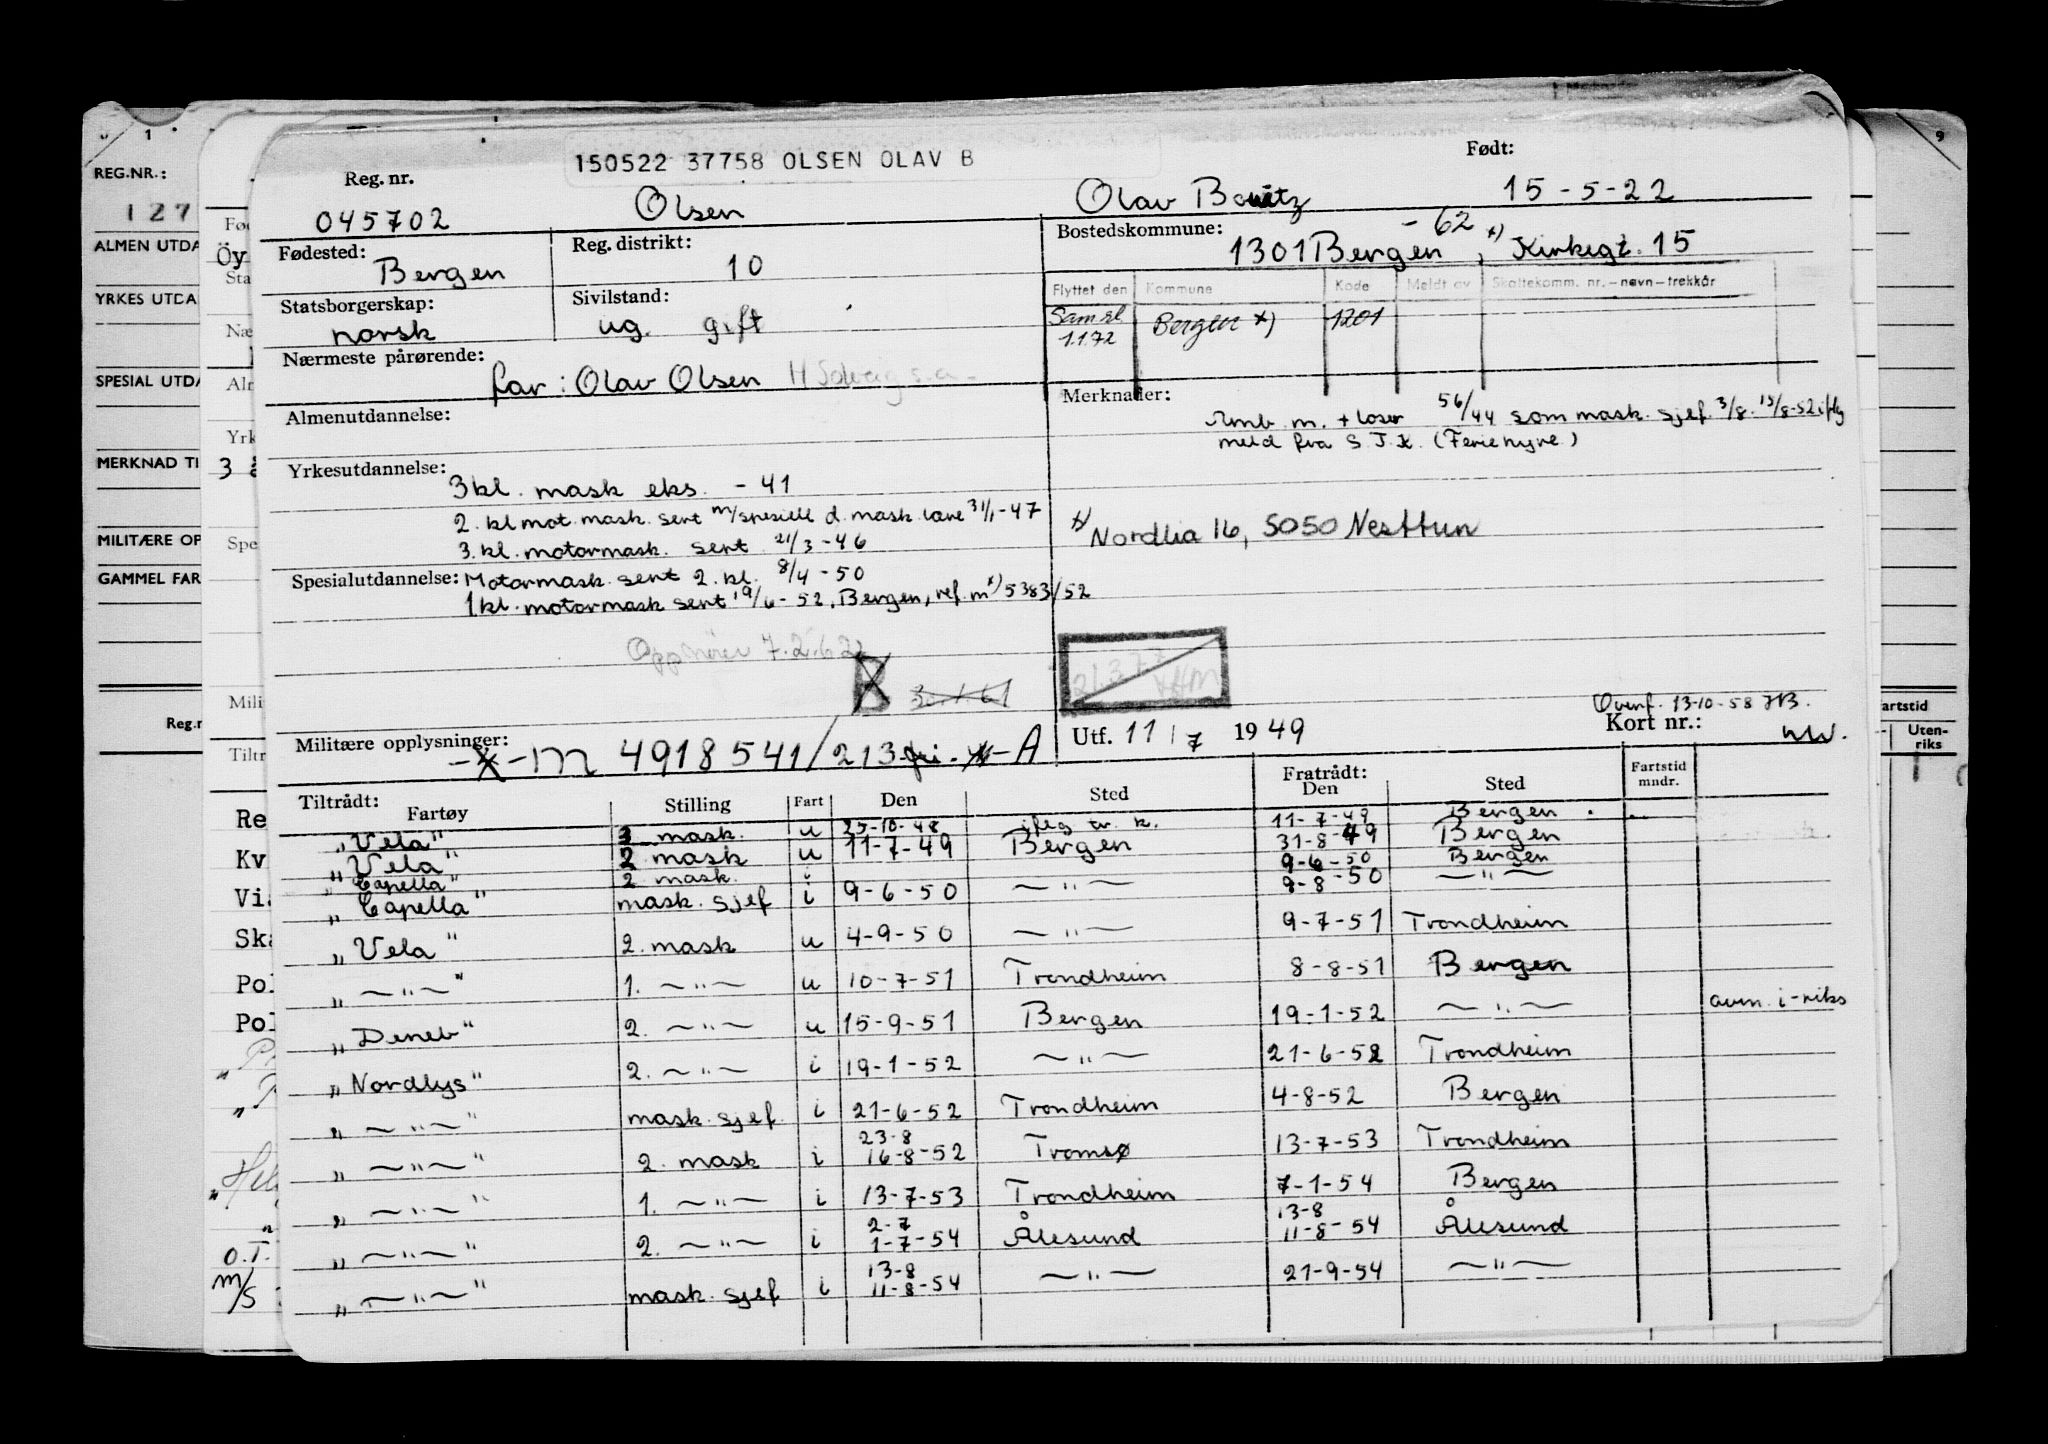 150522 37758 OLSEN OLAV B
Reg. nr. Født:
045702 Olsen Olav 15-5-22
Fødested: Bergen
Reg. distrikt: 10
Bostedskommune: - 62 x)
1301 Bergen, Kirkegt. 15
Statsborgerskap: norsk
Sivilstand: ug. gift
Flyttet den Kommune Kode Meldt av Skattekomm. nr.-navn-trekkår
1.1.72 Bergen x) 1201
Nærmeste pårørende: far: Olav Olsen H Solveig s.a.
Almenutdannelse:
Merknader:
56/44 som mask. sjef 3/8-15/8-52 iflg
meld fra S.J.K. (Feriehyre)
Yrkesutdannelse: 3 kl. mask eks. - 41
2. kl mot. mask. sert m/spesiell d. mask. lære 31/1-47
3. kl. motormask. sert 21/3-46
x) Nordlia 16, 5050 Nesttun
Spesialutdannelse: Motormask. sert 2. kl. 8/4-50
1 kl. motormask sert 19/6-52, Bergen, ref. m x) 5383/52
7.2.62
B
Militære opplysninger: -x-m 4918541/213 fri. -A
Utf. 11/7 1949
Overf. 13-10-58
Kort nr.:
Tiltrådt: Fratrådt:
Fartøy Stilling Fart Den Sted Den Sted Fartstid mndr.
"Vela" 3 mask. u 25-10-48 iflg tr. k. 11-7-49 Bergen
"Vela" 2 mask u 11-7-49 Bergen 31-8-49 Bergen
"Capella" 2 mask. i 9-6-50 Bergen
"Capella" mask. sjef i 9-6-50 —"— 9-8-50 —"—
"Vela" 2. mask u 4-9-50 —"— 9-7-51 Trondheim
"—"—" 1. —"— u 10-7-51 Trondheim 8-8-51 Bergen
"Deneb" 2. —"— u 15-9-51 Bergen 19-1-52 —"— avm. i-riks
"Nordlys" 2. —"— i 19-1-52 —"— 21-6-52 Trondheim
"—"—" mask. sjef i 21-6-52 Trondheim 4-8-52 Bergen
"—"—" 2. mask i 23-8 16-8-52 Tromsø 13-7-53 Trondheim
"—"—" 1. —"— i 13-7-53 Trondheim 7-1-54 Bergen
"—"—" 2. —"— i 2-7 1-7-54 Ålesund 13-8 11-8-54 Ålesund
"—"—" mask. sjef i 13-8 11-8-54 —"— 21-9-54 —"—
1
REG.NR.:
127
ALMEN UTDA
YRKES UTDA
SPECIAL UTDA
MERKNAD TI
MILITÆRE OP
GAMMEL FAR
Reg.n
Öy
Sta
Næ
Alm
Yrk
3 å
Spe
Mili
Tiltr
Re
Kv
Via
Ska
Pol
Pol
O.T.
m/s
9
artstid
Uten-
riks